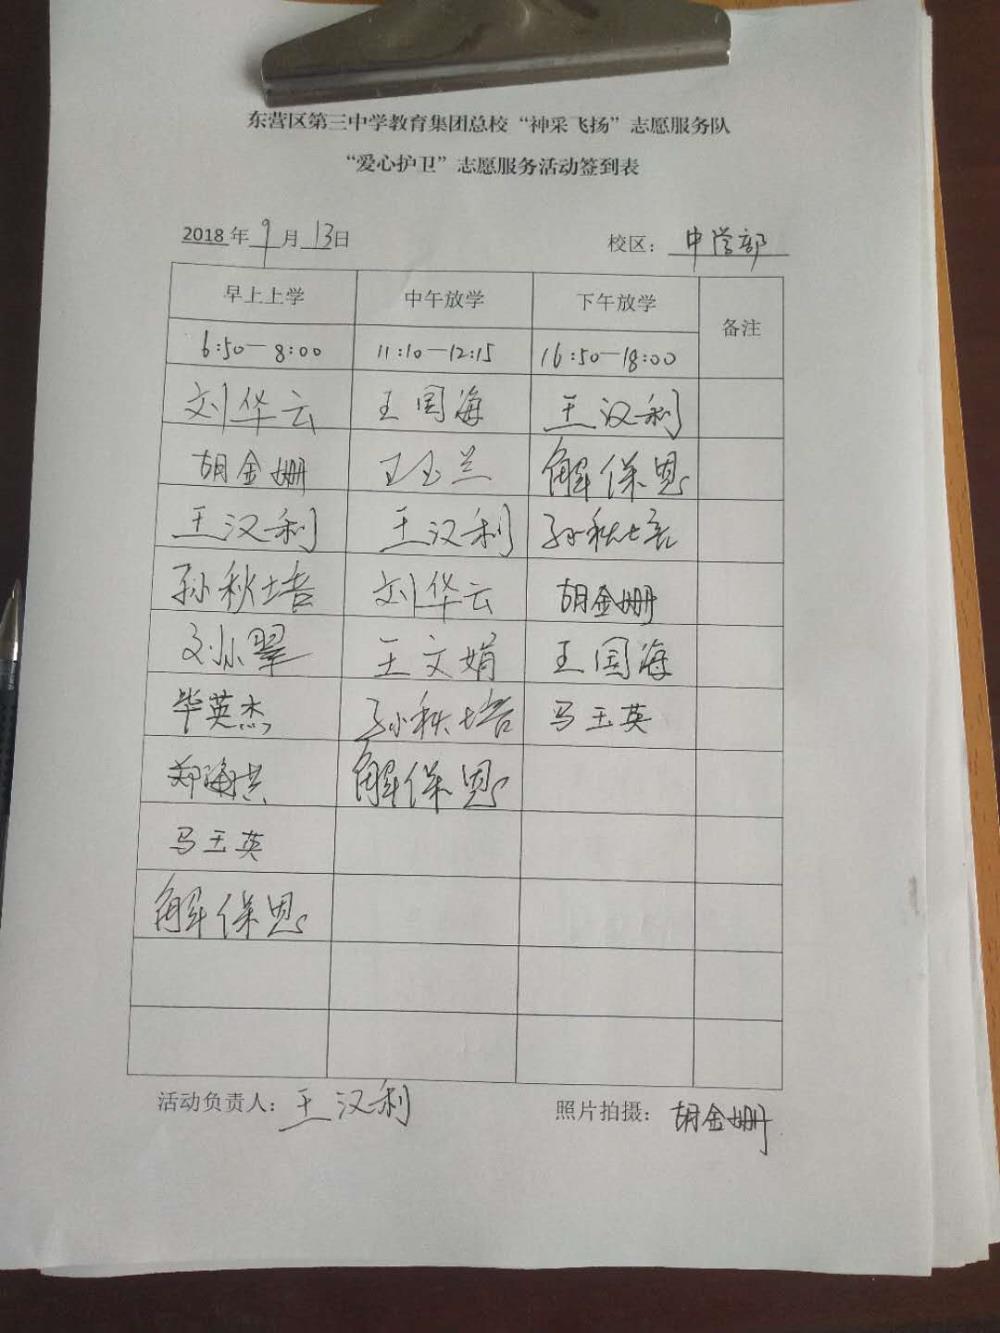 东营区第三中学教育集团总校“神采飞扬”志愿服务队
“爱心护卫”志愿服务活动签到表
2018年9月13日 校区：中学部
早上上学 中午放学 下午放学 备注
6:50—8:00 11:10—12:15 16:50—18:00
刘华云 王国海 王汉利
胡金姗 王玉兰 解保恩
王汉利 王汉利 孙秋培
孙秋培 刘华云 胡金姗
刘小翠 王文娟 王国海
毕英杰 孙秋培 马玉英
郑海洪 解保恩
马玉英
解保恩
活动负责人：王汉利 照片拍摄：胡金姗